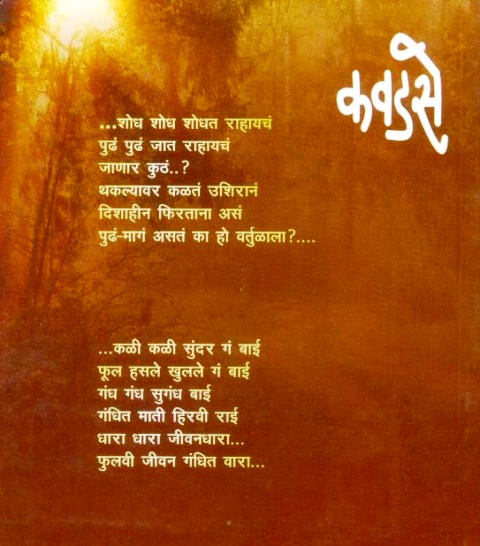 कवडसे
...शोध शोध शोधत राहायचं
पुढं पुढं जात राहायचं
जाणार कुठं..?
थकल्यावर कळतं उशिरानं
दिशाहीन फिरताना असं
पुढं-मागं असतं का हो वर्तुळाला?....
...कळी कळी सुंदर गं बाई
फूल हसले खुलले गं बाई
गंध गंध सुगंध बाई
गंधित माती हिरवी राई
धारा धारा जीवनधारा...
फुलवी जीवन गंधित वारा...